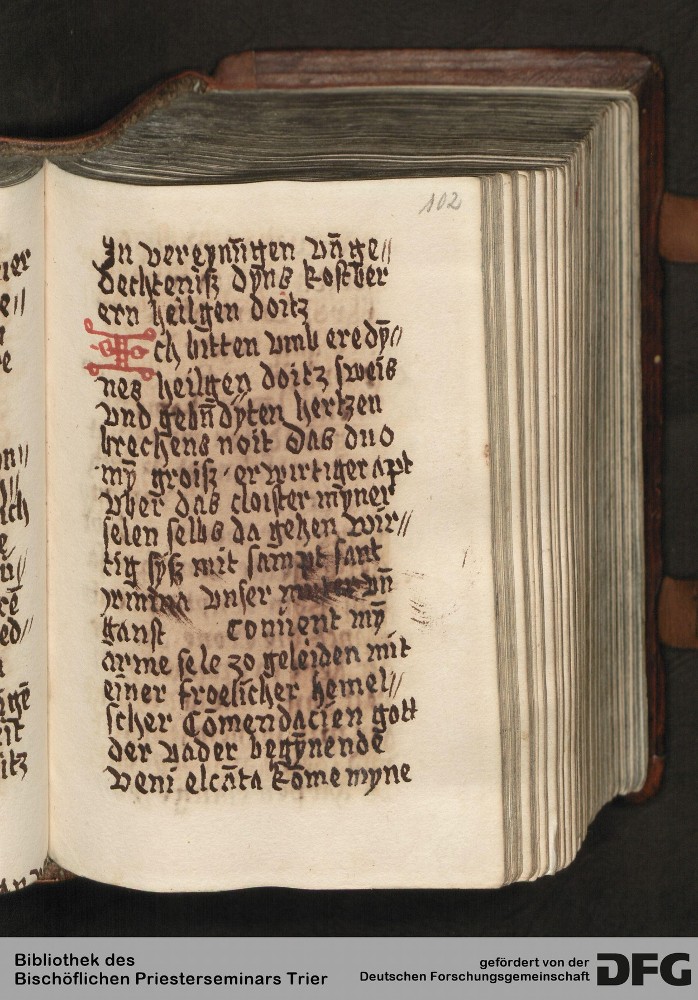 102
In vereynūgen vn̄ ge//
dechteniß dyns kostber
ern heilgen doitz
Ich bitten vmb ere dÿ//
nes heilgen doitz sweis
vnd gebn̄dyten hertzen
brechens noit Das duo
mȳ groiß erwirtiger apt
vber das cloister myner
selen selbs da gehen wir//
tig syß mit sampt sant
vnser muter vn̄
ganst Conuent mȳ
arme sele zo geleiden mit
einer froelicher hemel//
scher Cōmendacien gott
der vader begȳnende
Veni elcāta kōme myne
Bibliothek des
Bischöflichen Priesterseminars Trier
gefördert von der
Deutschen Forschungsgemeinschaft
DFG